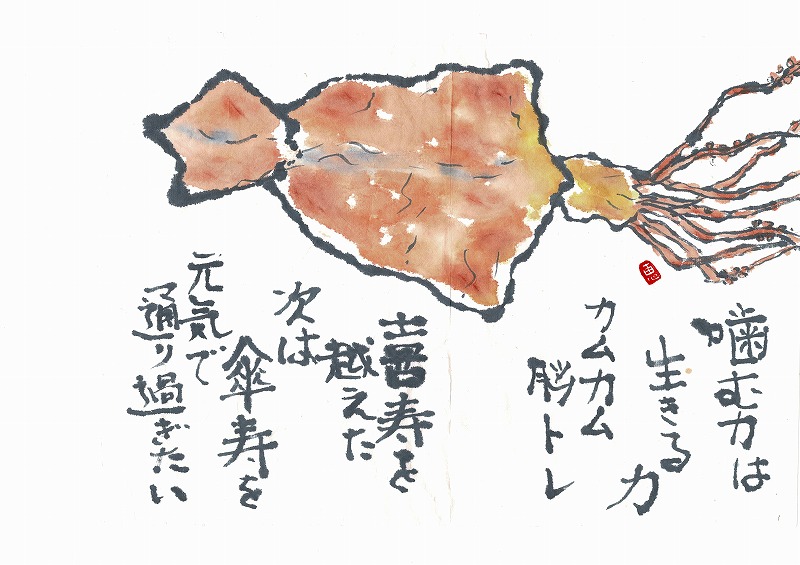 噛む力は
生きる力
カムカム
脳トレ
喜寿を
越えた
次は
傘寿を
元気で
通り過ぎたい